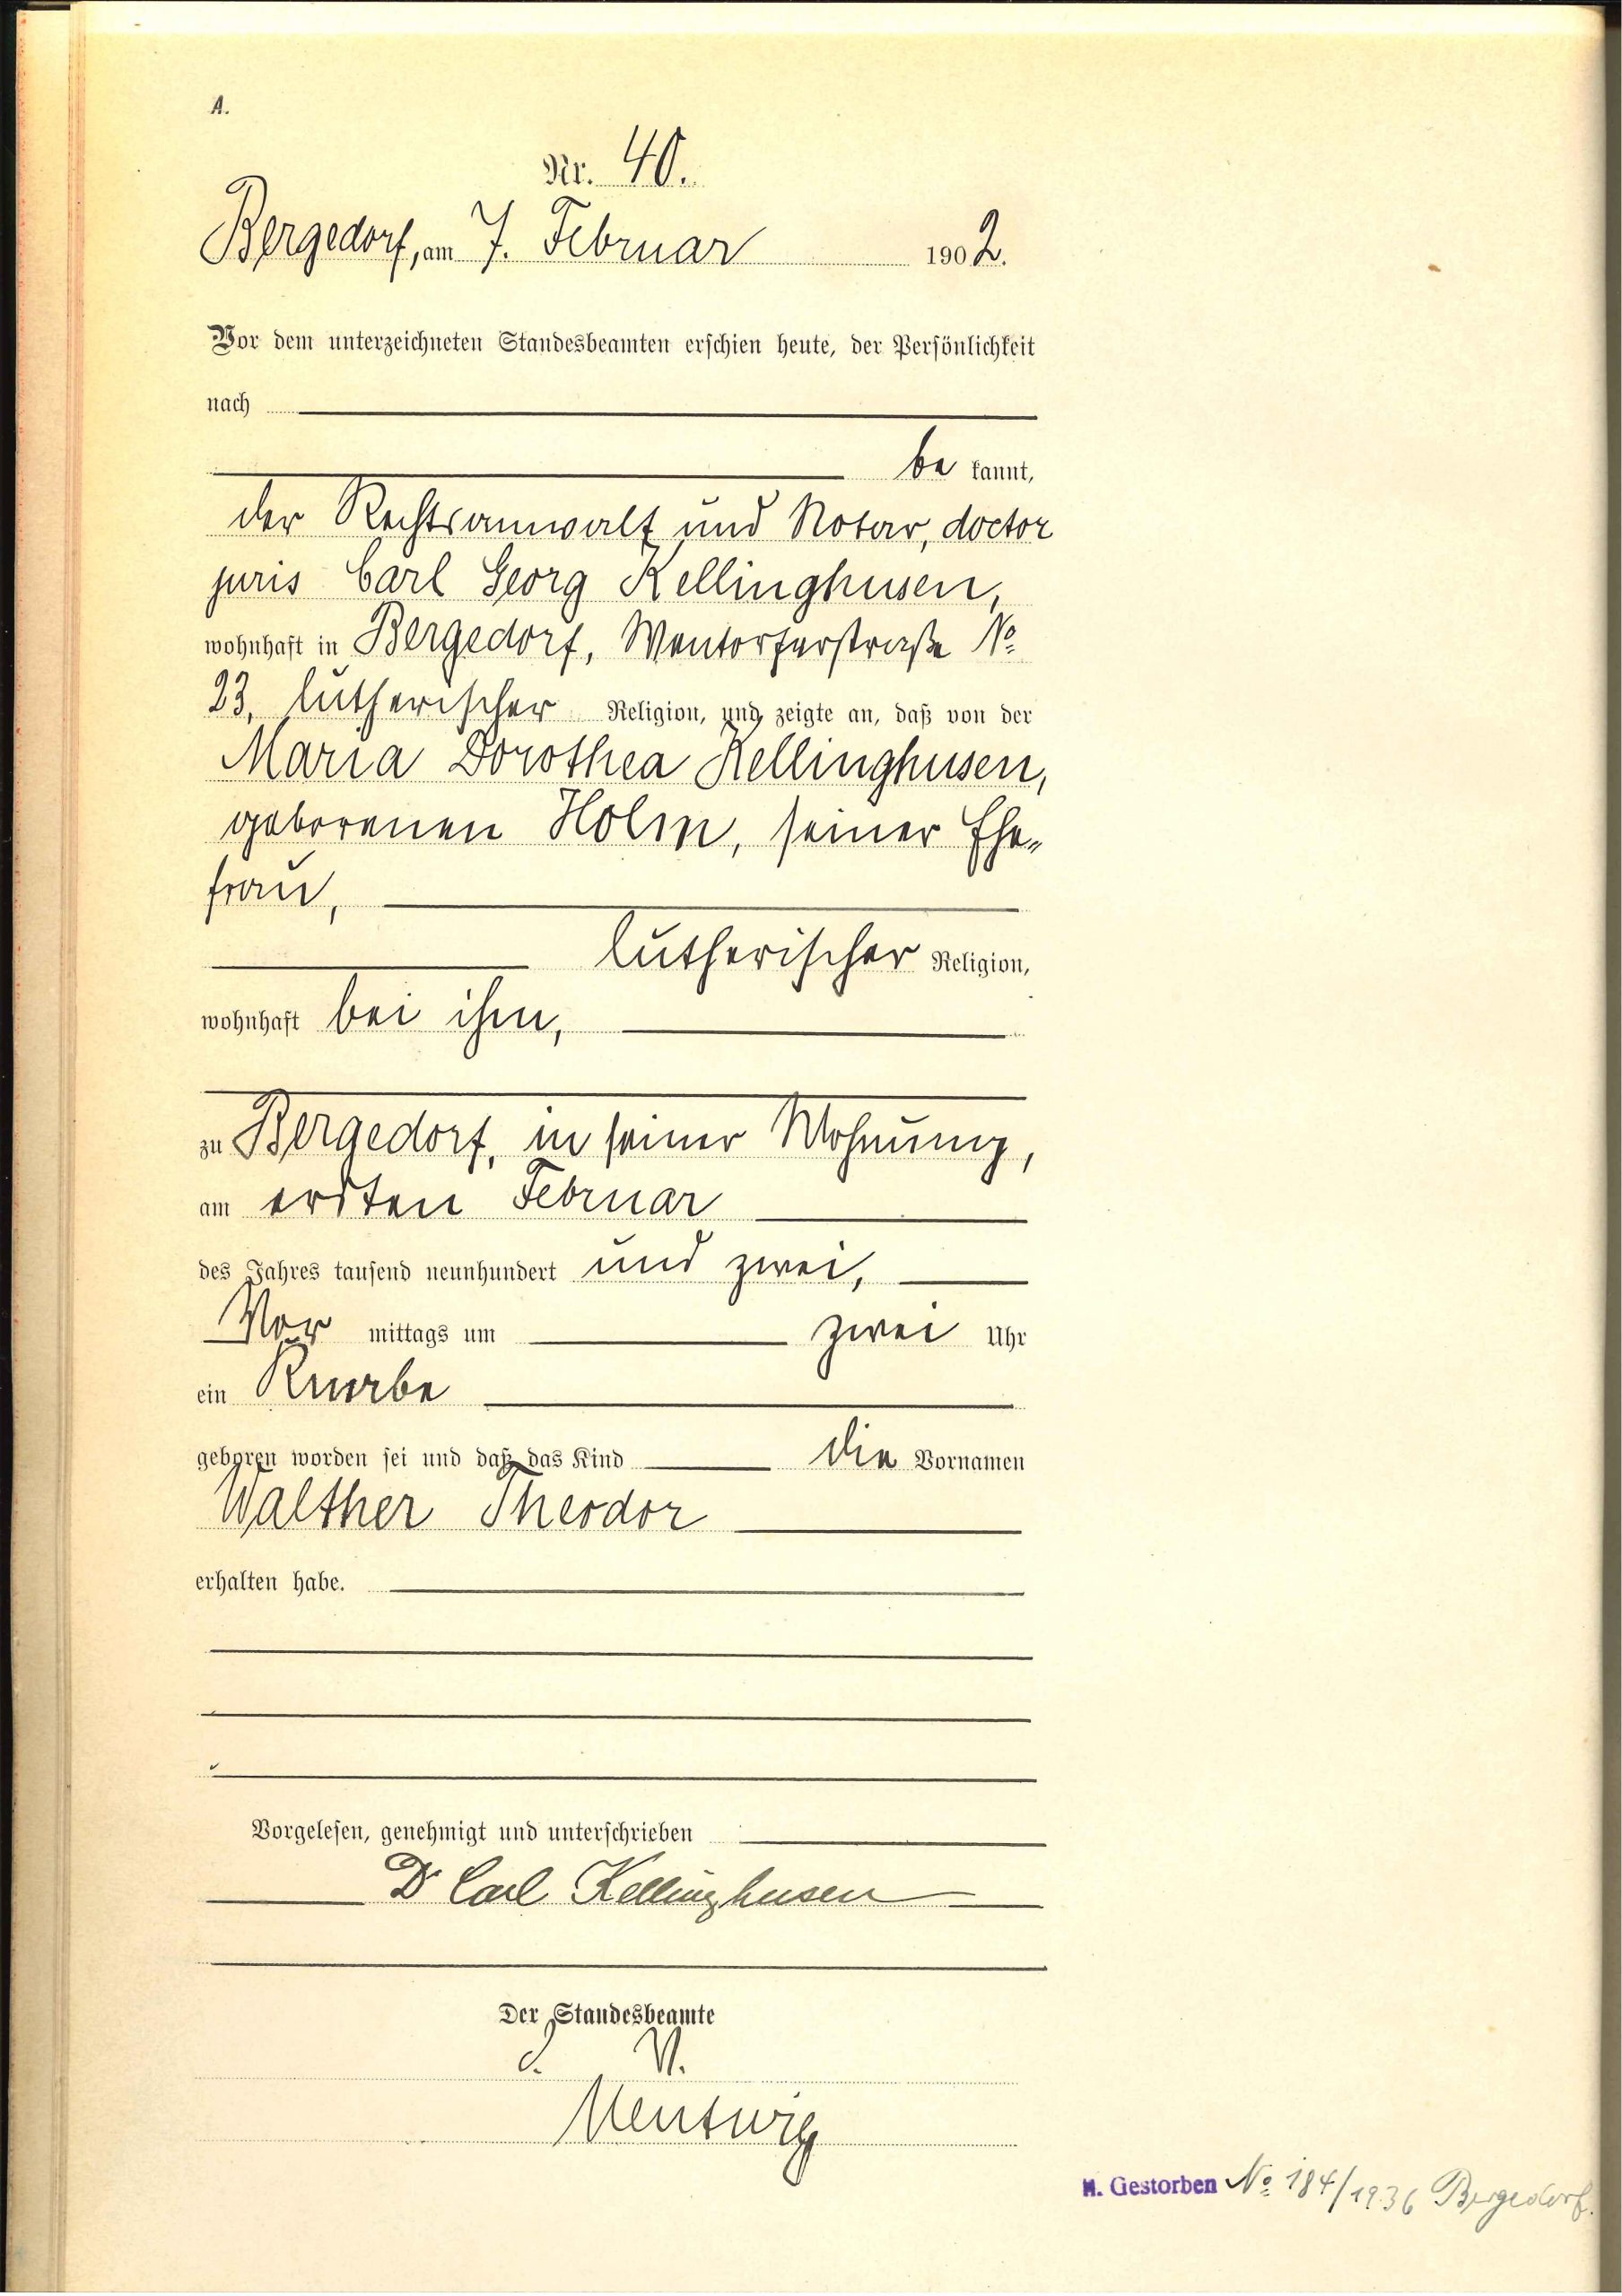 A.
Nr. 40.
Bergedorf, am 7. Februar 1902.
Vor dem unterzeichneten Standesbeamten erschien heute, der Persönlichkeit
nach
be kannt,
der Rechtsanwalt und Notar, doctor
juris Carl Georg Kellinghusen,
wohnhaft in Bergedorf, Wentorferstraße No
23, lutherischer Religion, und zeigte an, daß von der
Maria Dorothea Kellinghusen,
geborenen Holm, seiner Ehe-
frau,
lutherischer Religion,
wohnhaft bei ihm,
zu Bergedorf, in seiner Wohnung,
am ersten Februar
des Jahres tausend neunhundert und zwei,
Vor mittags um zwei Uhr
ein Knabe
geboren worden sei und daß das Kind die Vornamen
Walther Theodor
erhalten habe.
Vorgelesen, genehmigt und unterschrieben
Dr Carl Kellinghusen
Der Standesbeamte
J. V.
H. Gestorben No 184/1936 Bergedorf.